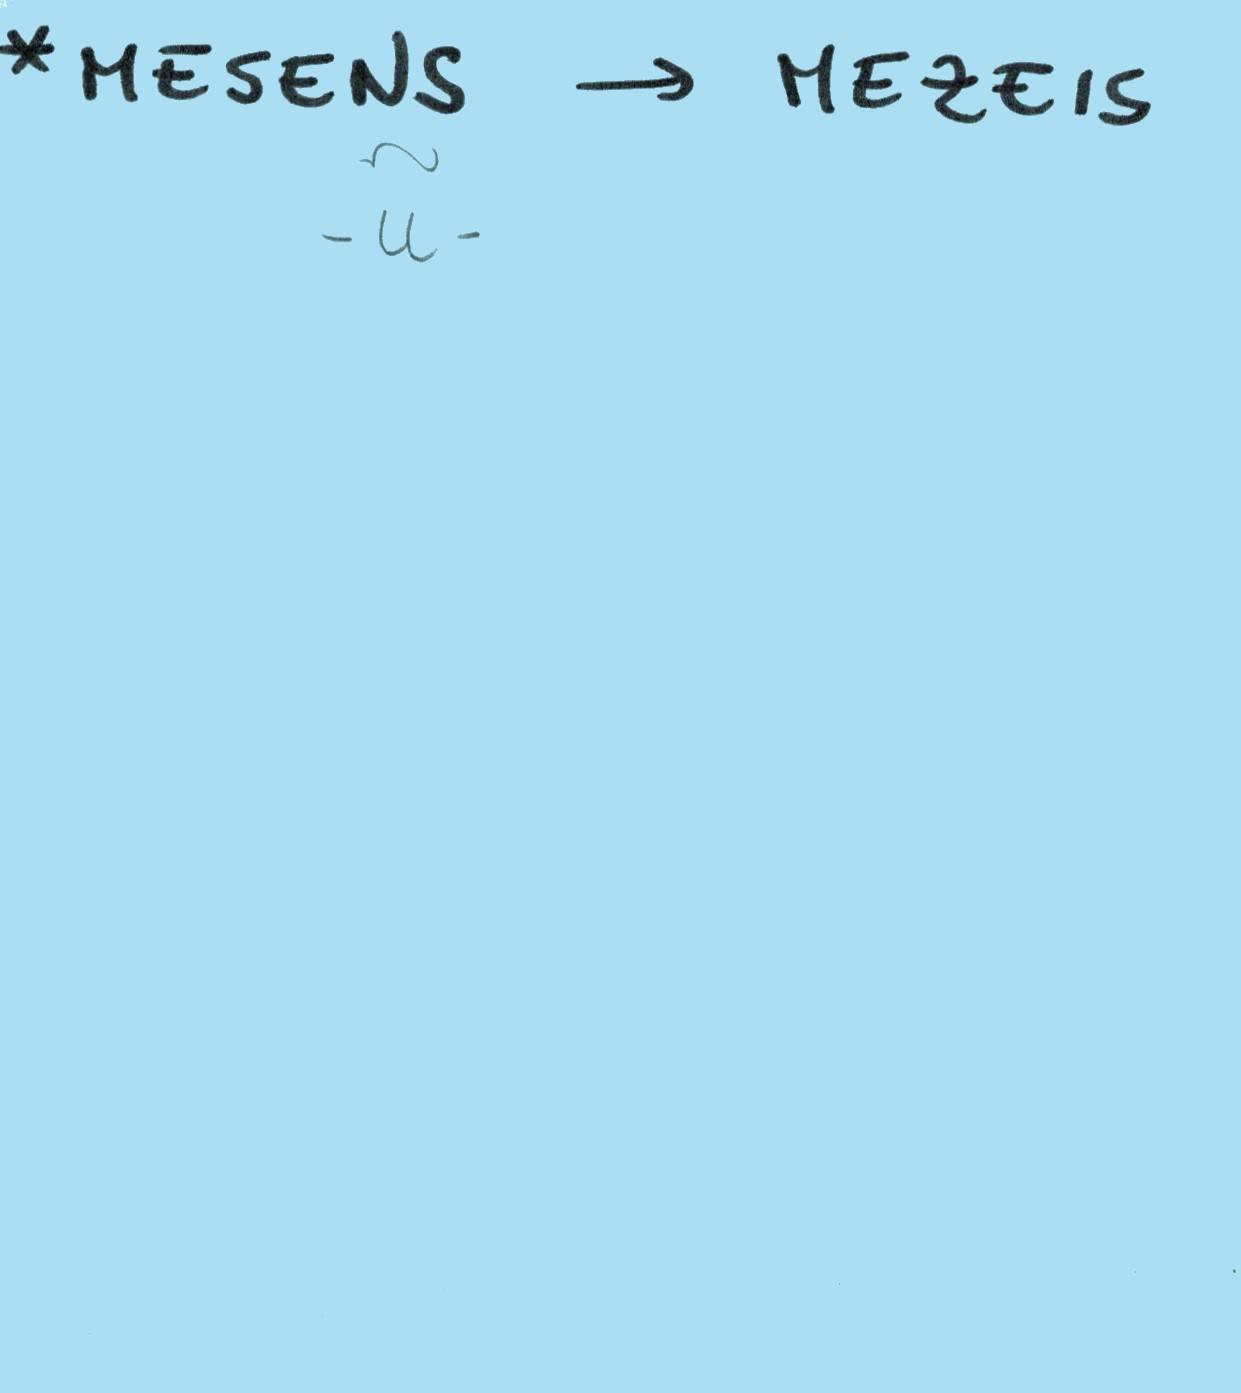 *MESENS → MEZEIS
~
-u-